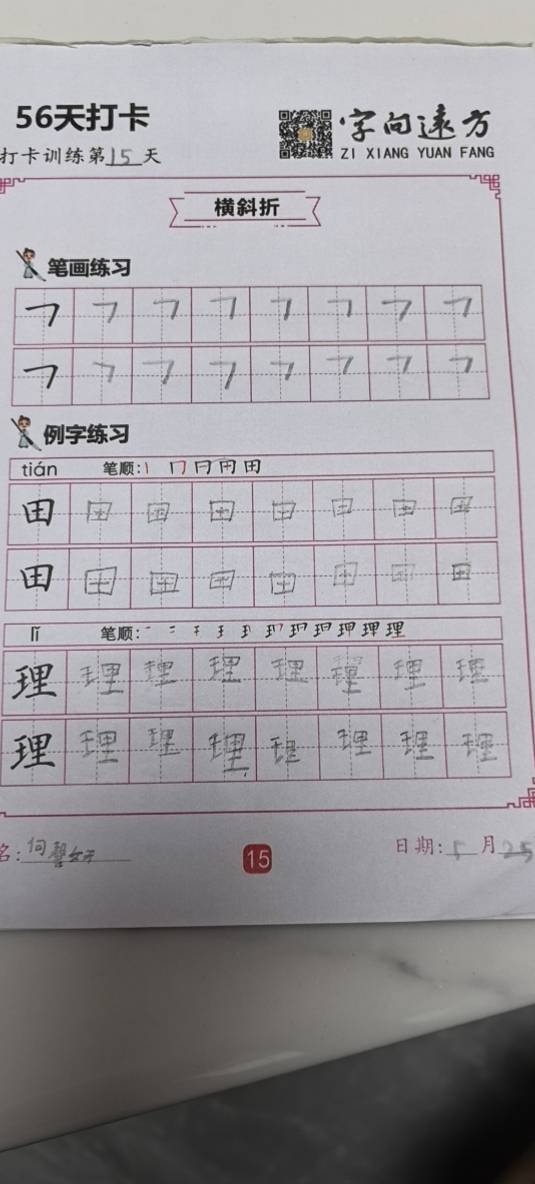 56天打卡
字向远方
打卡训练第15天
ZI XIANG YUAN FANG
横斜折
笔画练习
㇇ ㇇ ㇇ ㇇ ㇇ ㇇ ㇇ ㇇
㇇ ㇇ ㇇ ㇇ ㇇ ㇇ ㇇ ㇇
例字练习
tián 笔顺: 丨 冂 日 田 田
田 田 田 田 田 田 田 田
田 田 田 田 田 田 田 田
lǐ 笔顺:
理 理 理 理 理 理 理 理
理 理 理 理 理 理 理 理
名:何馨妍
15
日期:5月25